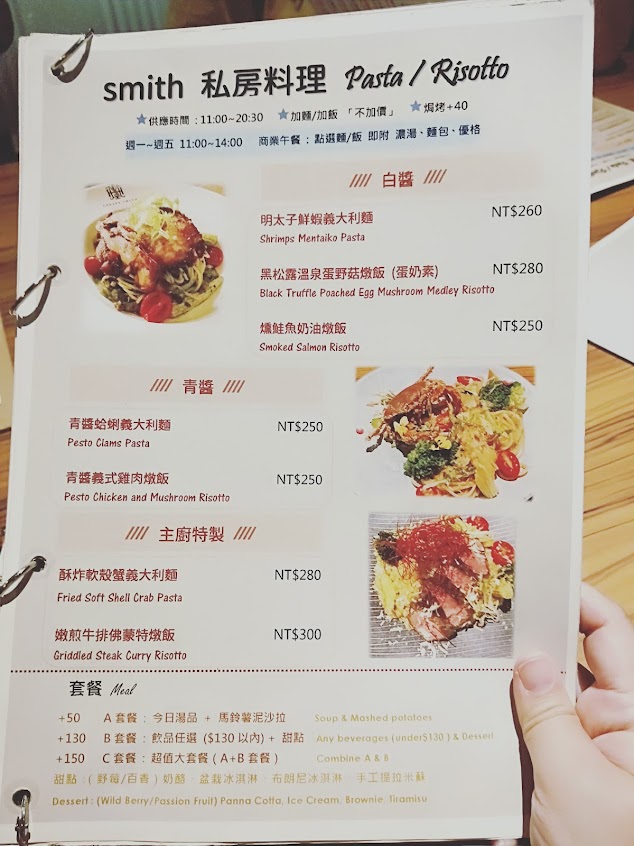 smith 私房料理 Pasta / Risotto
★供應時間：11:00~20:30 ★加麵/加飯「不加價」 ★焗烤+40
週一~週五 11:00~14:00 商業午餐：點選麵/飯 即附 濃湯、麵包、優格
//// 白醬 ////
明太子鮮蝦義大利麵 NT$260
Shrimps Mentaiko Pasta
黑松露溫泉蛋野菇燉飯 (蛋奶素) NT$280
Black Truffle Poached Egg Mushroom Medley Risotto
燻鮭魚奶油燉飯 NT$250
Smoked Salmon Risotto
//// 青醬 ////
青醬蛤蜊義大利麵 NT$250
Pesto Clams Pasta
青醬義式雞肉燉飯 NT$250
Pesto Chicken and Mushroom Risotto
//// 主廚特製 ////
酥炸軟殼蟹義大利麵 NT$280
Fried Soft Shell Crab Pasta
嫩煎牛排佛蒙特燉飯 NT$300
Griddled Steak Curry Risotto
套餐 Meal
+50 A 套餐：今日湯品 + 馬鈴薯泥沙拉 Soup & Mashed potatoes
+130 B 套餐：飲品任選 ($130 以內) + 甜點 Any beverages (under$130 ) & Dessert
+150 C 套餐：超值大套餐 ( A+B 套餐 ) Combine A & B
甜點：( 野莓/百香 ) 奶酪、盆栽冰淇淋、布朗尼冰淇淋、手工提拉米蘇
Dessert : (Wild Berry/Passion Fruit) Panna Cotta, Ice Cream, Brownie, Tiramisu